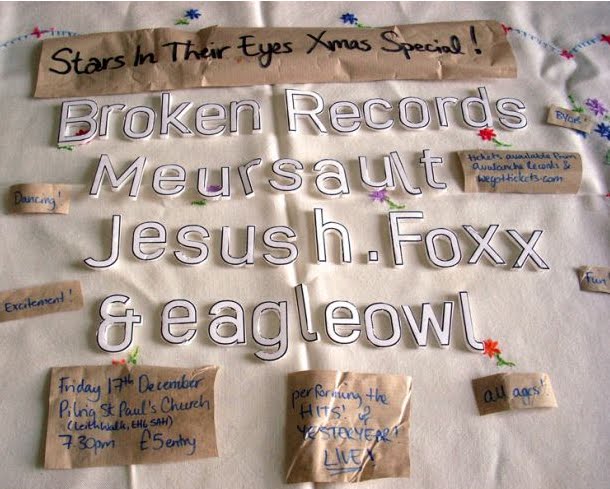 Stars In Their Eyes Xmas Special!
Broken Records
BYOB!
Meursault
tickets available from
Avalanche Records &
wegottickets.com
Dancing!
Jesus h. Foxx
Fun
Excitement!
& eagleowl
Friday 17th December
Pilrig St Paul's Church
(Leith Walk, EH6 5AH)
7.30pm £5 entry
performing the
HITS! of
YESTERYEAR!
LIVE
all ages!